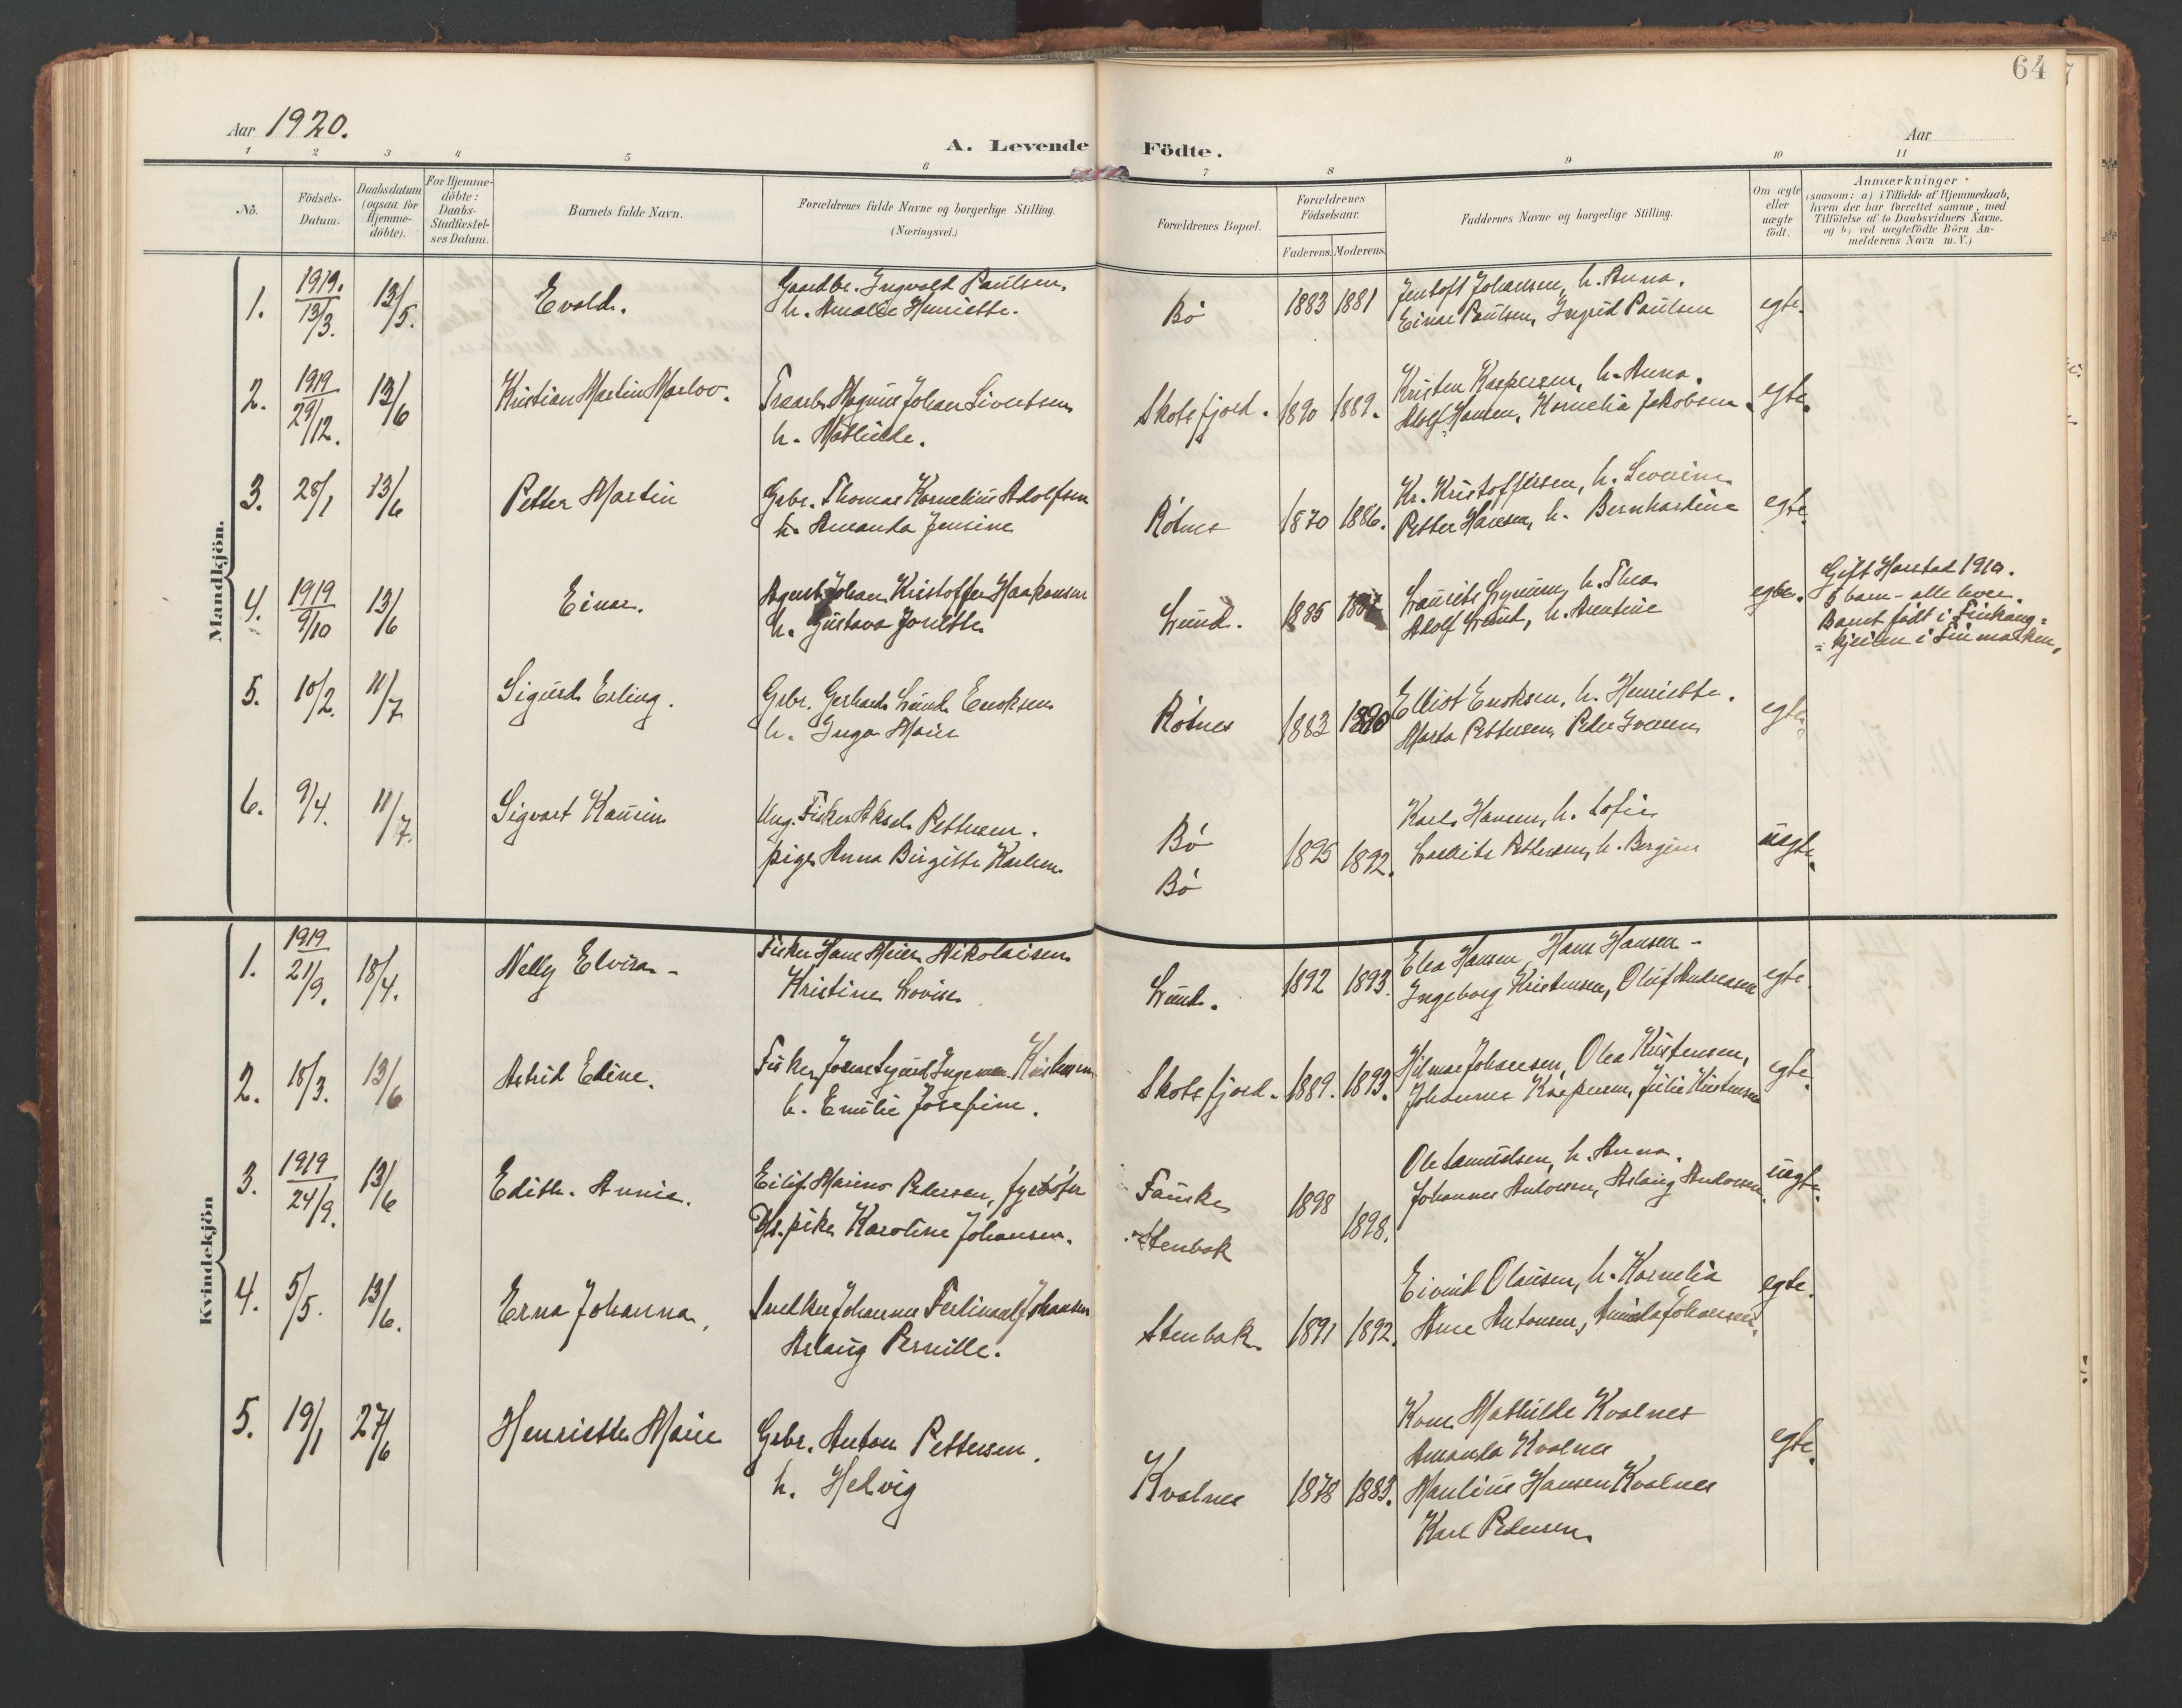 64
Aar 1920.
A. Levende Födte.
Aar
1 2 3 4 5 6 7 8 9 10 11
No.
Födsels-
Datum.
Daabsdatum
(ogsaa for
Hjemme-
döbte).
For Hjemme-
döbte:
Daabs-
Stadfæstel-
ses Datum.
Barnets fulde Navn.
Forældrenes fulde Navne og borgerlige Stilling.
(Næringsvei.)
Forældrenes Bopæl.
Forældrenes
Födselsaar.
Faderens. Moderens.
Faddernes Navne og borgerlige Stilling.
Om ægte
eller
uægte
födt.
Anmærkninger
(saasom: a) i Tilfælde af Hjemmedaab,
hvem der har forrettet samme, med
Tilföielse af to Daabsvidners Navne.
og b) ved uægtefödte Börn An-
melderens Navn m. V.)
Mandkjön.
1. 1919. 13/3. 13/5. Evold. Gaardbr. Ingvald Paulsen,
h. Amalie Henriette.
Bö 1883 1881 Jentoft Johansen, h. Anna.
Einar Paulsen, Ingrid Paulsen egte.
2. 1919 29/12. 13/6 Kristian Martin Marlov. Johan Sivertsen
h. Mathilde.
Skotsfjord. 1890 1889. Kristen Kaspersen, h. Anna.
Adolf Hansen, Kornelia Jakobsen. egte.
3. 28/1 13/6 Petter Martin Grbr. Thomas Kornelius Adolfsen
h. Amanda Jensine
Rötnes 1870 1886. Kr. Kristoffersen, h. Severine
Petter Hansen, h. Bernhardine egte.
4. 1919 9/10 13/6 Einar. Agent Johan Kristoffer Haakonsen
h. Gustava Jonette
Lund. 1885 Laurits h. Thea
Adolf Lund, h. Arentine egte.
Gift Harstad 1910.
5 barn - alle lever.
Barnet födt i Finkong-
=kjeilen i Finmarken,
5. 10/2. 11/7 Sigurd Erling. Grbr. Gerhard Lund Enoksen
h. Inga Marie
Rötnes 1883 1890 Elliot Enoksen, h. Henriette.
Marta Pettersen, Peder Iversen egte.
6. 9/4. 11/7. Sigvart Kaurin Ung. Fisker Aksel Pettersen.
pige Anna Birgitte Karlsen
Bö
Bö
1895 1892. Karl Hansen, h. Sofie
Laurits Pettersen, h. Bergine uegte.
Kvindekjön
1. 1919 21/9. 18/4. Nelly Elvira - Fisker Hans Meier Nikolaisen
Kristine Lovise
Lund. 1892 1893. Elea Hansen, Hans Hansen -
Ingeborg Kristensen, Oluf Andreassen egte.
2. 18/3. 13/6 Astrid Edine. Fisker Sigurd Ingeman Kristensen
h. Emilie Josefine.
Skotsfjord. 1889. 1893. Hilmar Johansen, Olea Kristensen,
Johannes Kaspersen, Julie Kristensen egte.
3. 1919 24/9. 13/6 Edith Annie. Eilif Marino Pedersen, fyrböter
pike Karoline Johansen.
Fauske
Stenbak
1898 1898. Ole Samuelsen, h. Anna.
Johannes Antonsen, Aslaug Andorsen. uegte.
4. 5/5. 13/6. Erna Johanna, Snekker Johannes Ferdinand Johansen
Aslaug Pernille.
Stenbak 1891 1892. Eivind Olausen, h. Kornelia
Arne Antonsen, Johansen. egte.
5. 19/1 27/6 Henriette Marie Grbr. Anton Pettersen.
h. Helvig
Kvalnes 1878 1883. Kone Mathilde Kvalnes
Amanda Kvalnes
Paulius Hansen Kvalnes
Karl Pedersen
egte.